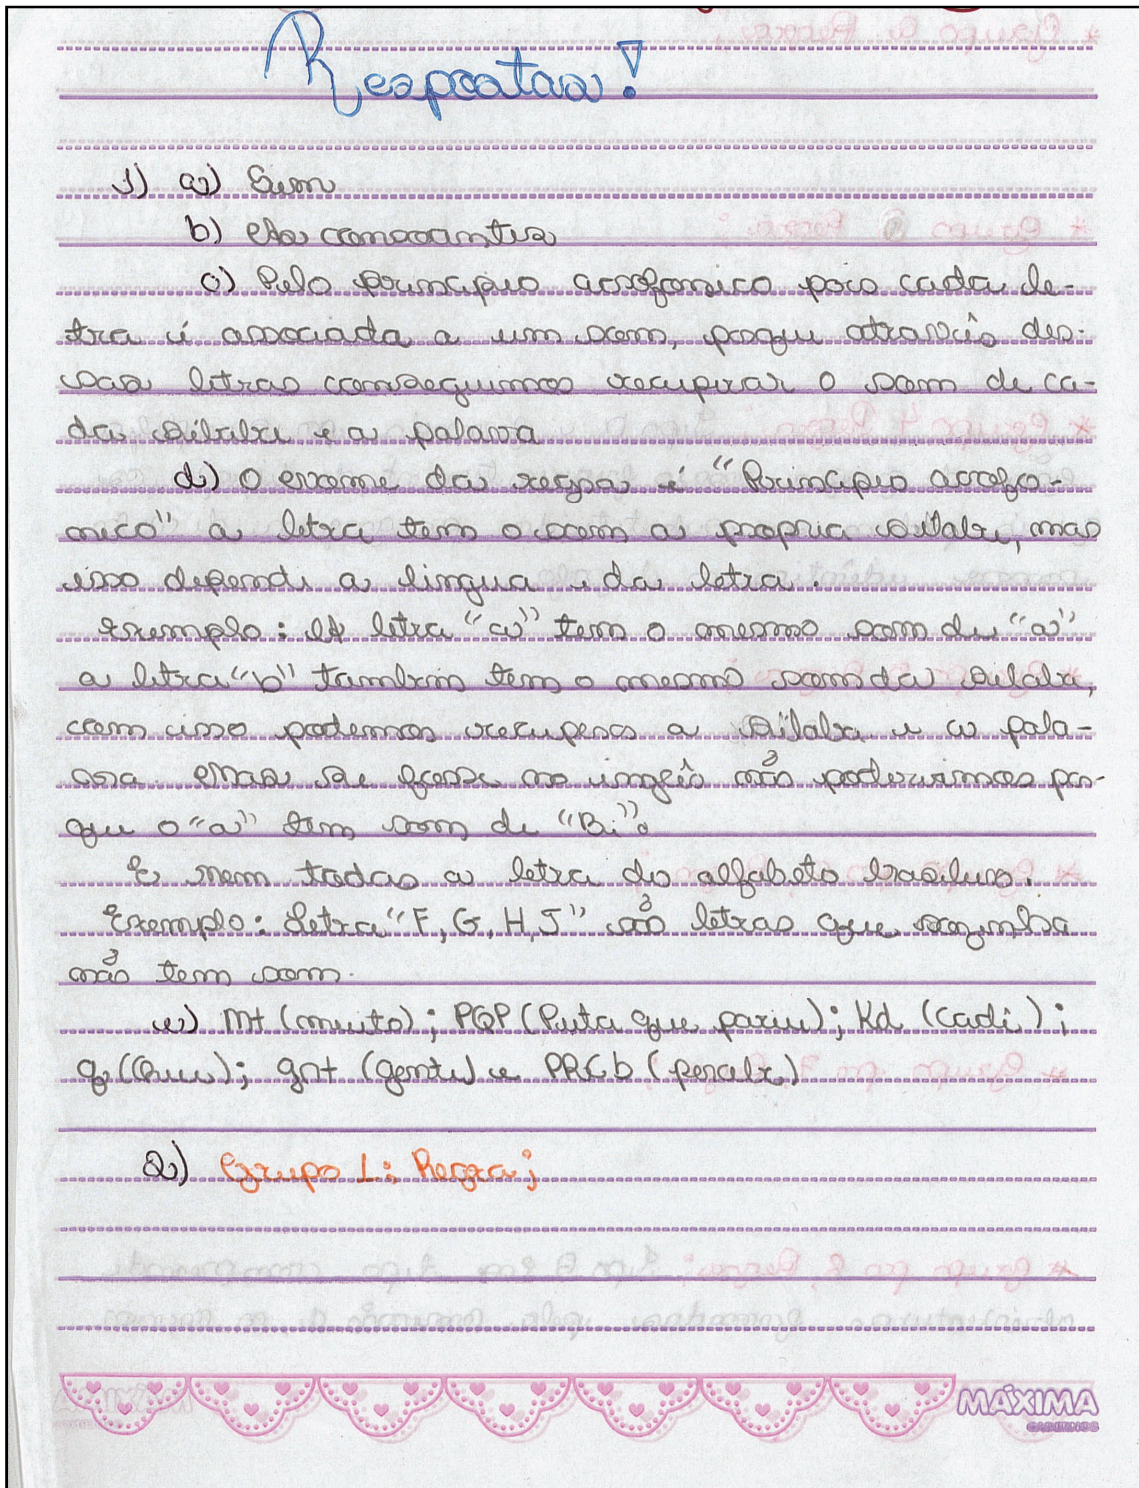 Respostas!
1) a) Sim
b) As consoantes
c) Pelo principio acrofonico pois cada le-
tra é associada a um som, porque através des-
sas letras conseguimos recuperar o som de ca-
da silaba e a palavra
d) O enome da regra é "Principio acrofo-
nico" a letra tem o som a propria silaba, mas
isso depende a lingua e da letra.
Exemplo: A letra "a" tem o mesmo som de "a"
a letra "b" também tem o mesmo som da silaba,
com isso podemos recuperar a silaba e a pala-
vra. Mas se fosse no inglês não poderiamos por-
que o "a" tem som de "Bi".
E nem todas a letra do alfabeto brasileiro.
Exemplo: Letra "F, G, H, J" são letras que sozinha
não tem som.
e) Mt (muito); PQP (Puta que pariu); Kd (cadê);
q (Que); gnt (gente) e PRCb (perceb)
2) Grupo 1: Regra;
MÁXIMA
CADERNOS